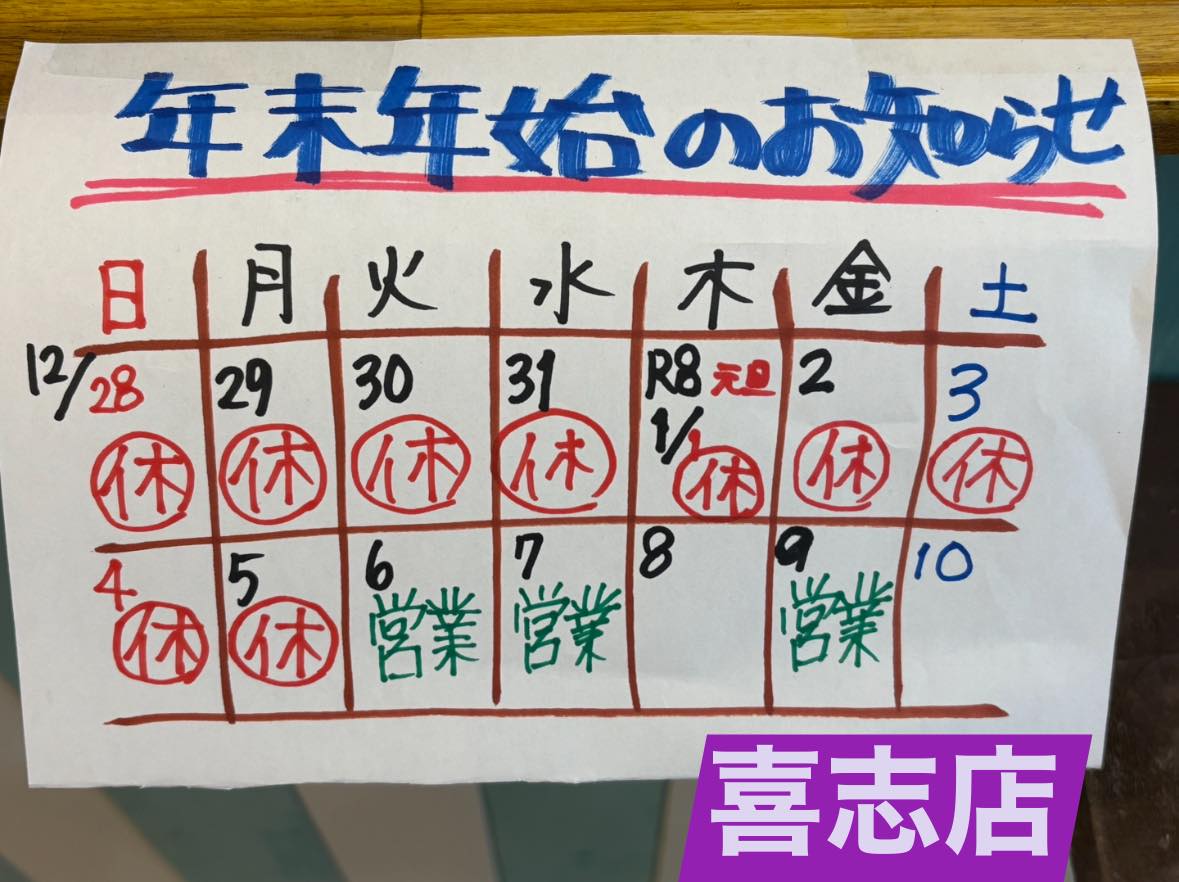 年末年始のお知らせ
日 月 火 水 木 金 土
12/28 29 30 31 R8 元旦 1/1 2 3
休 休 休 休 休 休 休
4 5 6 7 8 9 10
休 休 営業 営業 営業
喜志店